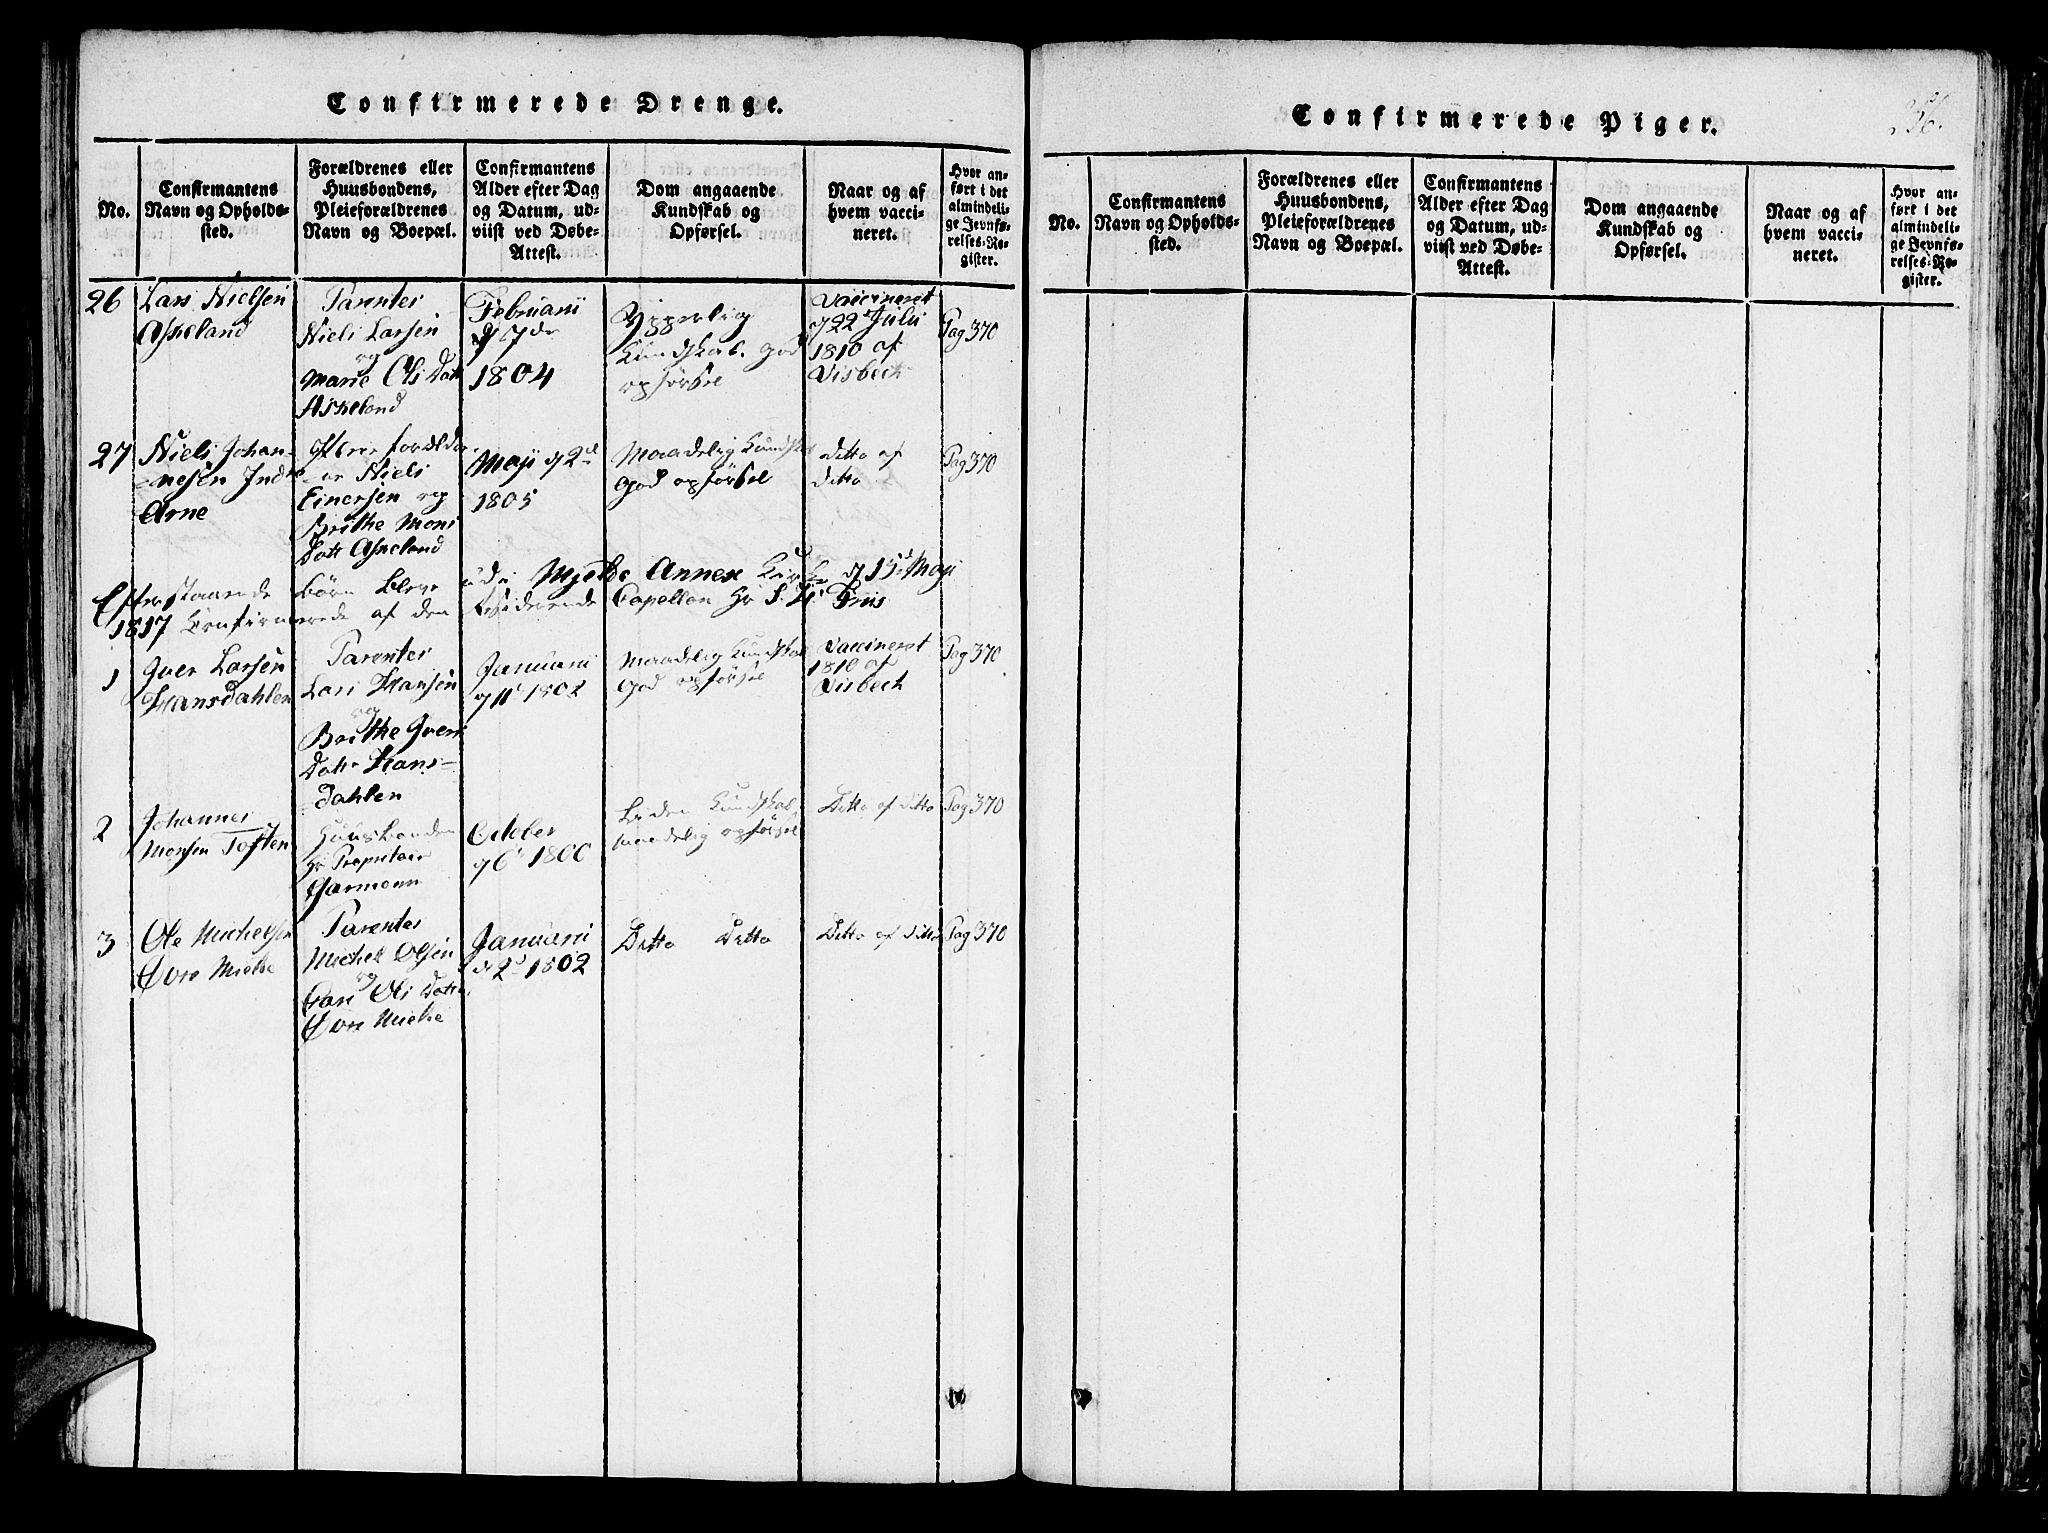 Confirmerede Drenge.
No.
Confirmantens
Navn og Opholds-
sted.
Forældrenes eller
Huusbondens,
Pleieforældrenes
Navn og Boepæl.
Confirmantens
Alder efter Dag
og Datum, ud-
viist ved Døbe-
Attest.
Dom angaaende
Kundskab og
Opførsel.
Naar og af
hvem vacci-
neret.
Hvor an-
ført i det
almindeli-
ge Jevnfø-
relses-Re-
gister.
26
Lars Nielsen
Askeland
Parentes
Niels Larsen
og
Marie Ols Datt
Askeland
Februarii
d 7de
1804
Ypperlig
Kundskab. god
opførsel
Vaccineret
d 22 Julii
1810 af
Visbeck
Pag 370
27
Niels Johan-
nesen Indre
Arne
Pleie forældre
er Niels
Einersen og
Brithe Mons
Datt Askeland
Maji d 2d
1805
Maadelig Kundskab
God opførsel
ditto af
ditto
Pag 370
Efterstaaende børn bleve udi Mjelde Annex Kirke d 15d Maji
1817 Confirmerede af den residerende Capellan Hr S. Friis
1
Iver Larsen
Hansdahlen
Parentes
Lars Hansen
og
Brithe Ivers
Datt Hans-
dahlen
Januarii
d 11t 1802
Maadelig Kundskab
God opførsel
Vaccineret
1810 af
Visbeck
Pag 370
2
Johannes
Monsen Toften
Huusbonden
Hr Proprietair
Garmann
October
d 6t 1800
Liden Kundskab
maadelig opførsel
Ditto af ditto
Pag 370
3
Ole Michelsen
Øvre Mielde
Parentes
Michel Olsen
og
Kari Ols Datt
Øvre Mielde
Januarii
d 2d 1802
Ditto Ditto
Ditto af ditto
Pag 370
Confirmerede Piger.
No.
Confirmantens
Navn og Opholds-
sted.
Forældrenes eller
Huusbondens,
Pleieforældrenes
Navn og Boepæl.
Confirmantens
Alder efter Dag
og Datum, ud-
viist ved Døbe-
Attest.
Dom angaaende
Kundskab og
Opførsel.
Naar og af
hvem vacci-
neret.
Hvor an-
ført i det
almindeli-
ge Jevnfø-
relses-Re-
gister.